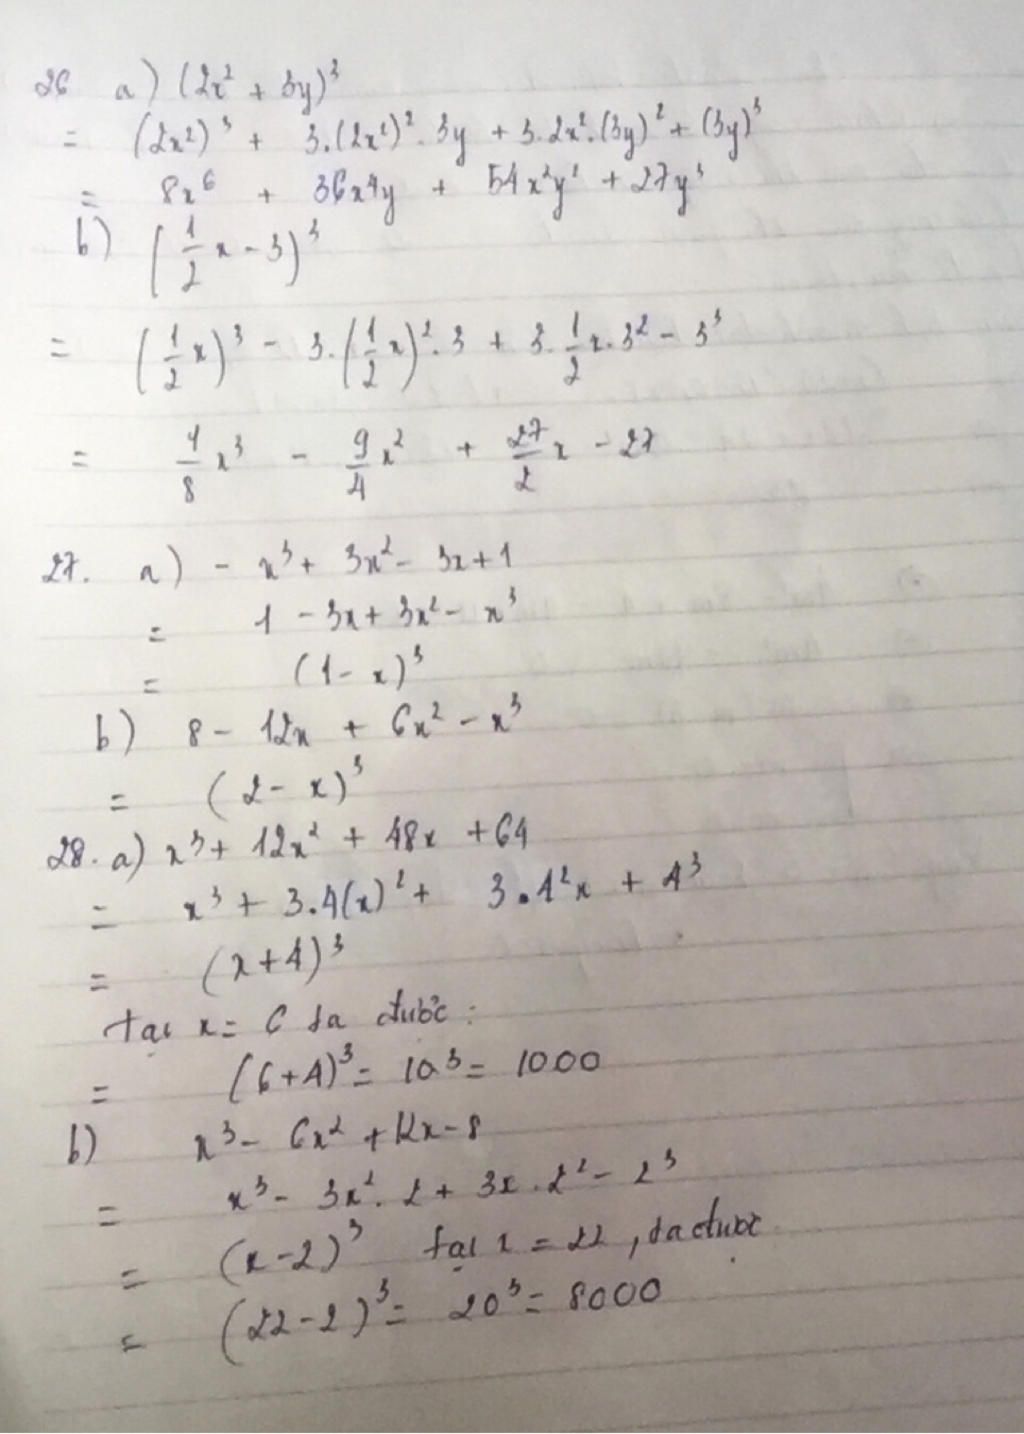 26 a) (2x² + 3y)³
= (2x²)³ + 3.(2x²)².3y + 3.2x².(3y)² + (3y)³
= 8x⁶ + 36x⁴y + 54x²y² + 27y³
b) (1/2 x - 3)³
= (1/2 x)³ - 3.(1/2 x)².3 + 3.1/2 x.3² - 3³
= 1/8 x³ - 9/4 x² + 27/2 x - 27
27. a) - x³ + 3x² - 3x + 1
= 1 - 3x + 3x² - x³
= (1 - x)³
b) 8 - 12x + 6x² - x³
= (2 - x)³
28. a) x³ + 12x² + 48x + 64
= x³ + 3.4(x)² + 3.4²x + 4³
= (x + 4)³
tại x = 6 ta được :
= (6 + 4)³ = 10³ = 1000
b) x³ - 6x² + 12x - 8
= x³ - 3x².2 + 3x.2² - 2³
= (x - 2)³ tại x = 22, ta được
= (22 - 2)³ = 20³ = 8000